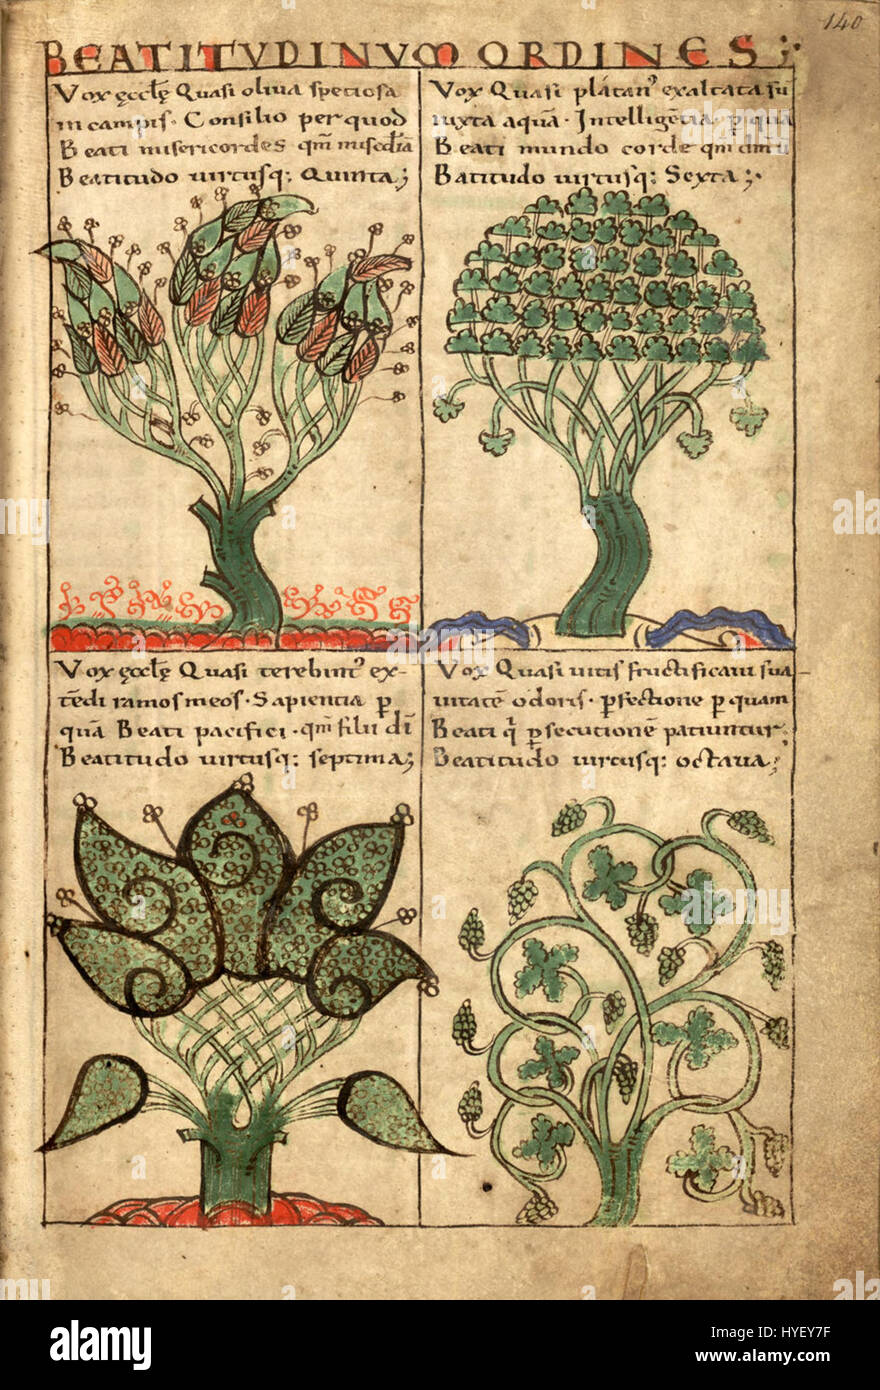 140
BEATITVDINVM ORDINES ;
Vox ęccłę Quasi oliua speciosa
in campis · Consilio per quod
Beati misericordes qm̄ misedīā
Beatitudo uirtusq: Quinta ;
Vox Quasi plátan' exaltata su
iuxta aquā · Intelligētia p̱ quā
Beati mundo corde qm̄
Batitudo uirtusq: Sexta ;
Vox ęccłę Quasi terebint' ex-
tēdi ramos meos · Sapientia p̱
quā Beati pacifici · qm̄ filii dī
Beatitudo uirtusq: septima ;
Vox Quasi uitis fructificaui sua
uitatē odoris · p̱fectione p̱ quam
Beati q' p̱secutionē patiuntur ;
Beatitudo uirtusq: octaua ;
alamy
alamy stock photo
HYEY7F
www.alamy.com